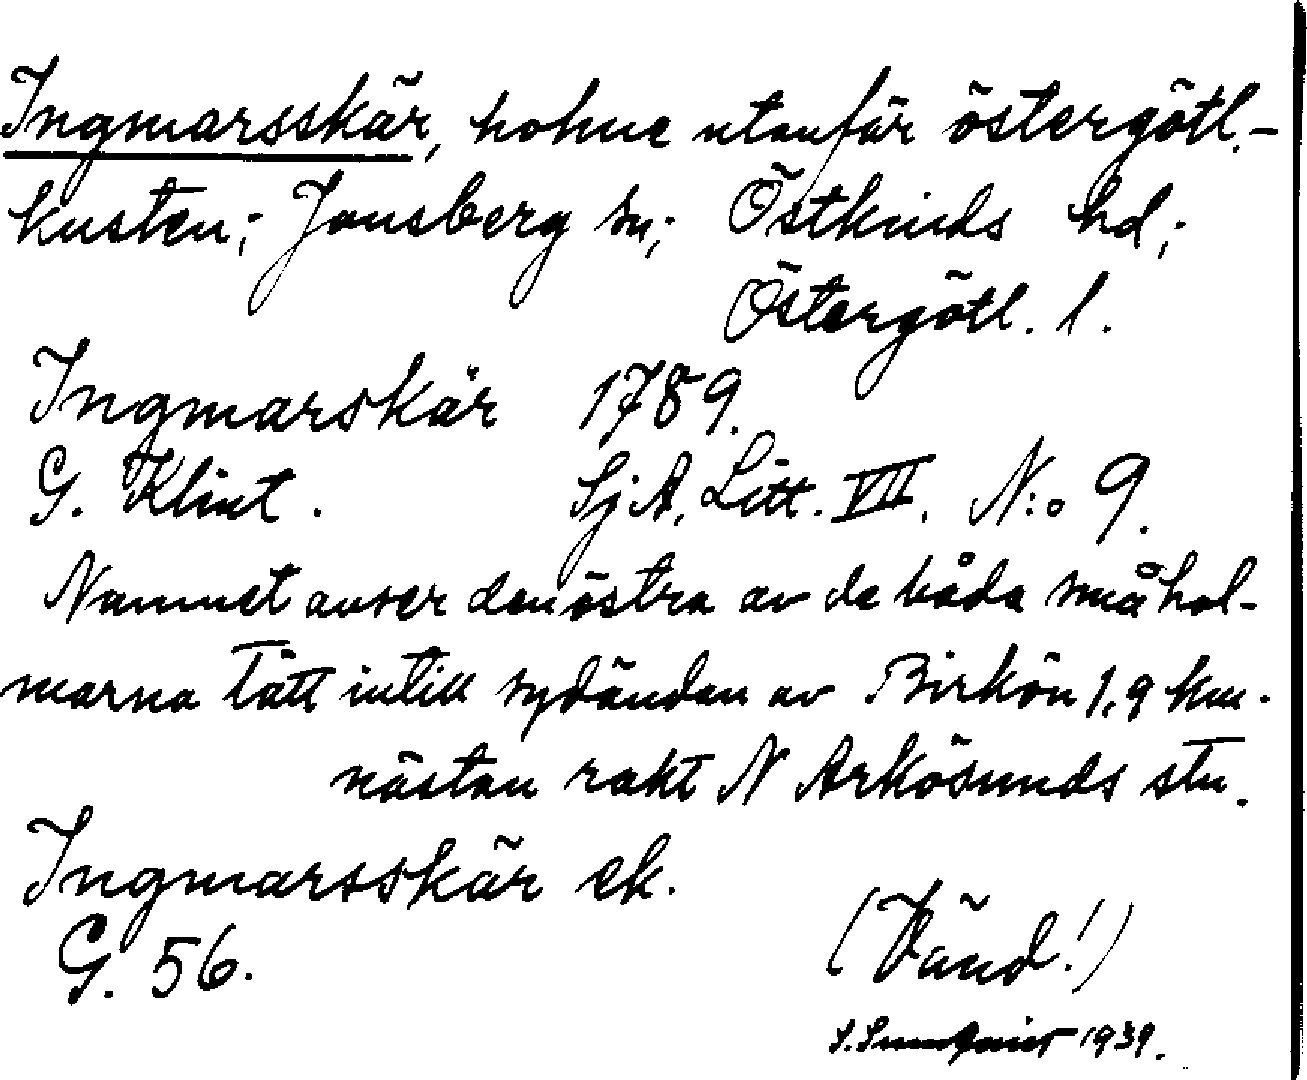 Ingmarsskär, holme utanför östergötl.-
kusten; Jonsberg sn; Östkinds hd;
Östergötl. l.
Ingmarskär 1789.
G. Klint. SjA, Litt. VII. N:o 9.
Namnet avser den östra av de båda små hol-
marna tätt intill sydändan av Birkön 1,9 km.
nästan rakt N Arkösunds stn.
Ingmarsskär ek.
G. 56.
(Vänd!)
S. Sundqvist 1939.